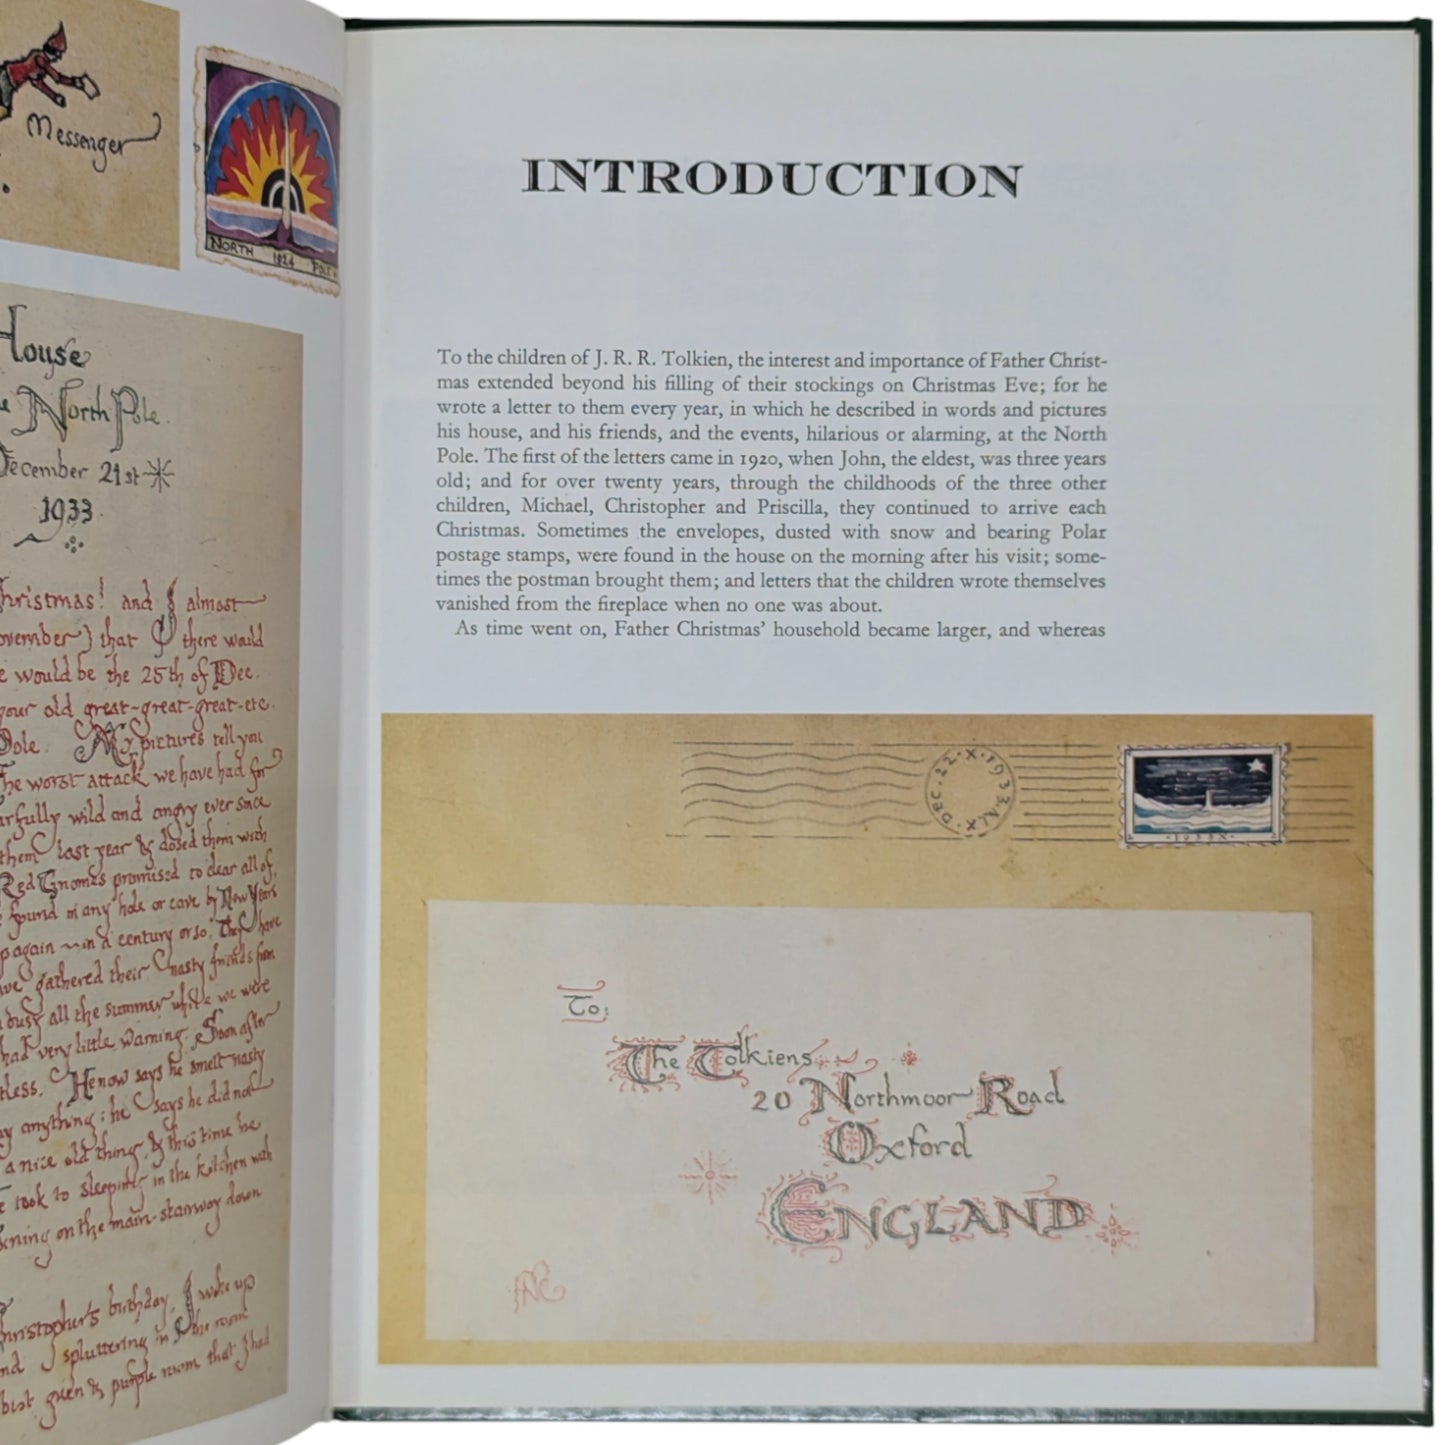 Messenger
NORTH 1924 POLE
House
North Pole.
December 21st
1933
Christmas! and I almost
November) that I there would
would be the 25th of Dec.
your old great-great-great-etc.
Pole. My pictures tell you
The worst attack we have had for
wild and angry ever since
them last year & dosed them with
Red Gnomes promised to clear all of
found in any hole or cave by New Years
again in a century or so. They have
gathered their nasty friends from
busy all the summer while we were
had very little warning. Soon after
He now says he smelt nasty
anything; he says he did not
a nice old thing, & this time he
took to sleeping in the kitchen with
on the main-stairway down
Christopher's birthday. I woke up
and spluttering in the room
green & purple room that I had
INTRODUCTION
To the children of J. R. R. Tolkien, the interest and importance of Father Christ-
mas extended beyond his filling of their stockings on Christmas Eve; for he
wrote a letter to them every year, in which he described in words and pictures
his house, and his friends, and the events, hilarious or alarming, at the North
Pole. The first of the letters came in 1920, when John, the eldest, was three years
old; and for over twenty years, through the childhoods of the three other
children, Michael, Christopher and Priscilla, they continued to arrive each
Christmas. Sometimes the envelopes, dusted with snow and bearing Polar
postage stamps, were found in the house on the morning after his visit; some-
times the postman brought them; and letters that the children wrote themselves
vanished from the fireplace when no one was about.
As time went on, Father Christmas' household became larger, and whereas
DEC. 22. X. 1933. NLX
To:
The Tolkiens
20 Northmoor Road
Oxford
ENGLAND